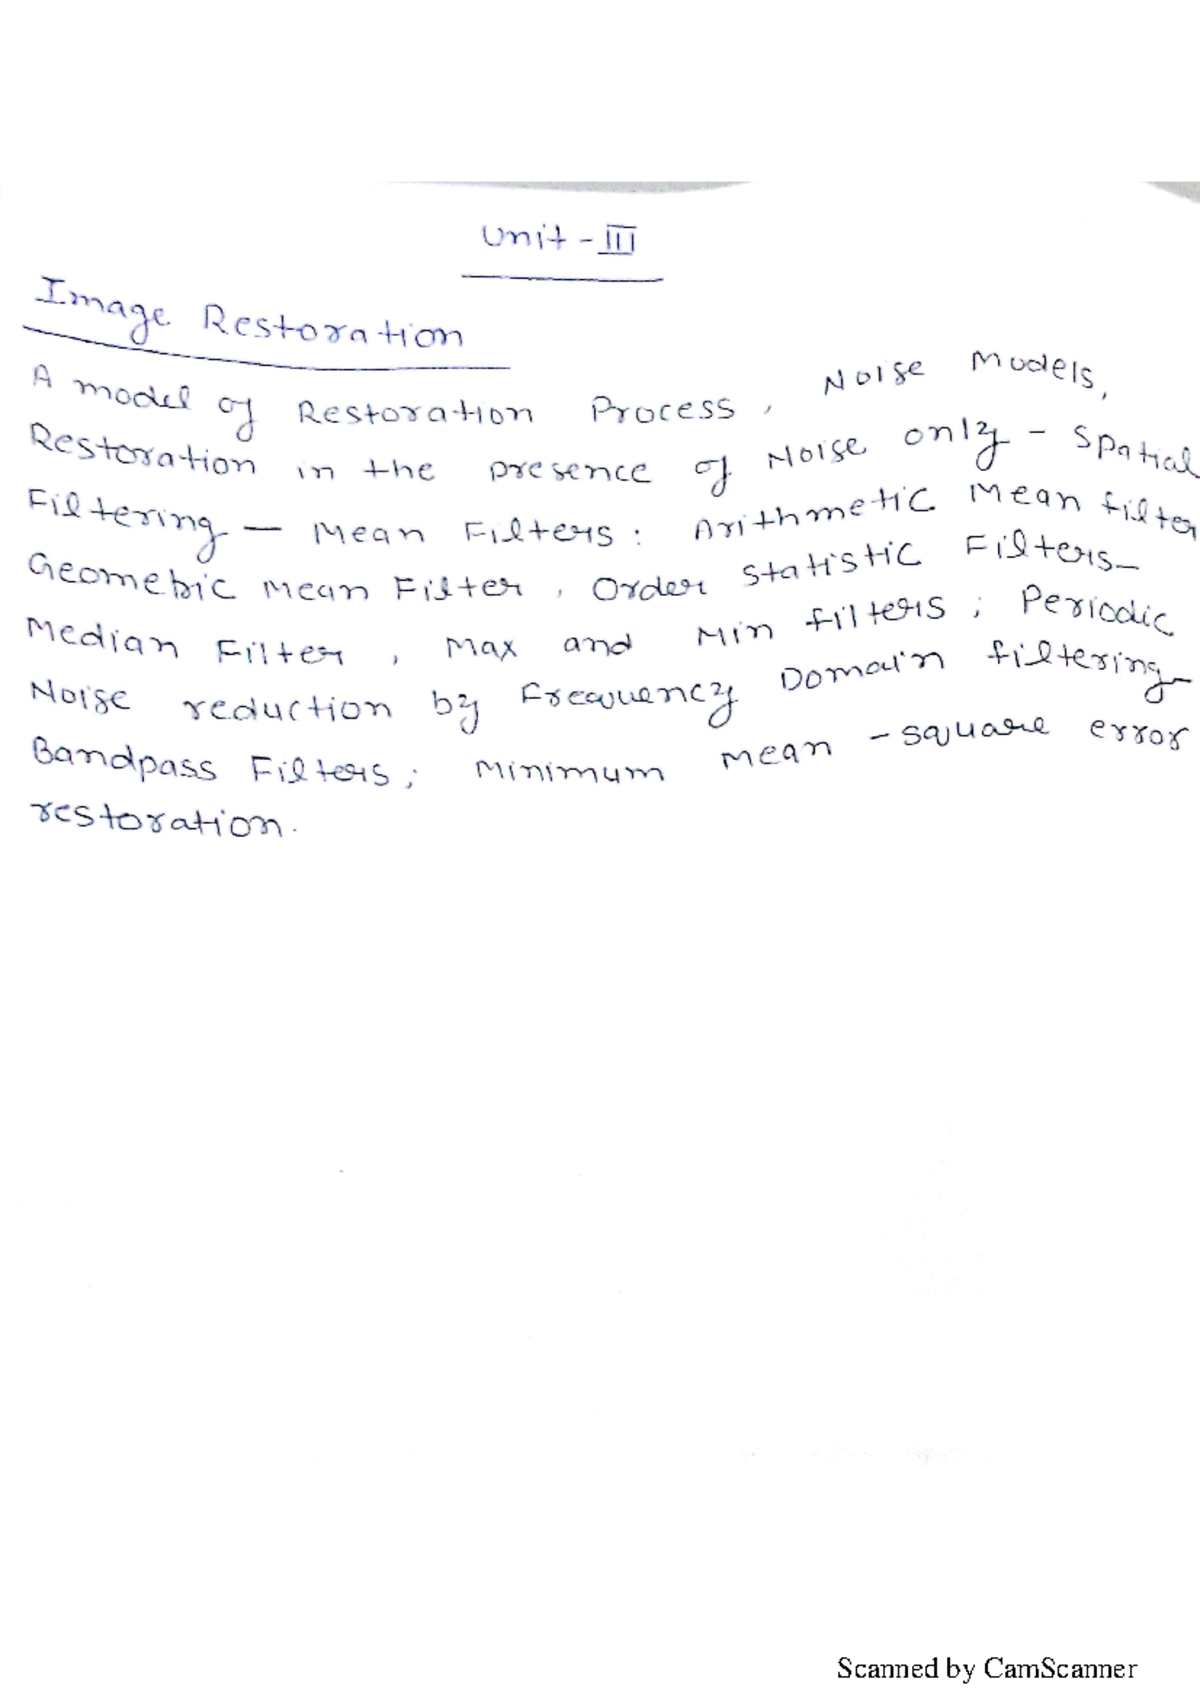 Unit - III
Image Restoration
A model of Restoration Process, Noise Models,
Restoration in the presence of Noise only - Spatial
Filtering — Mean Filters: Arithmetic Mean filter
Geometric Mean Filter, Order Statistic Filters-
Median Filter, Max and Min filters; Periodic
Noise reduction by Frequency Domain filtering-
Bandpass Filters; Minimum mean - square error
restoration.
Scanned by CamScanner